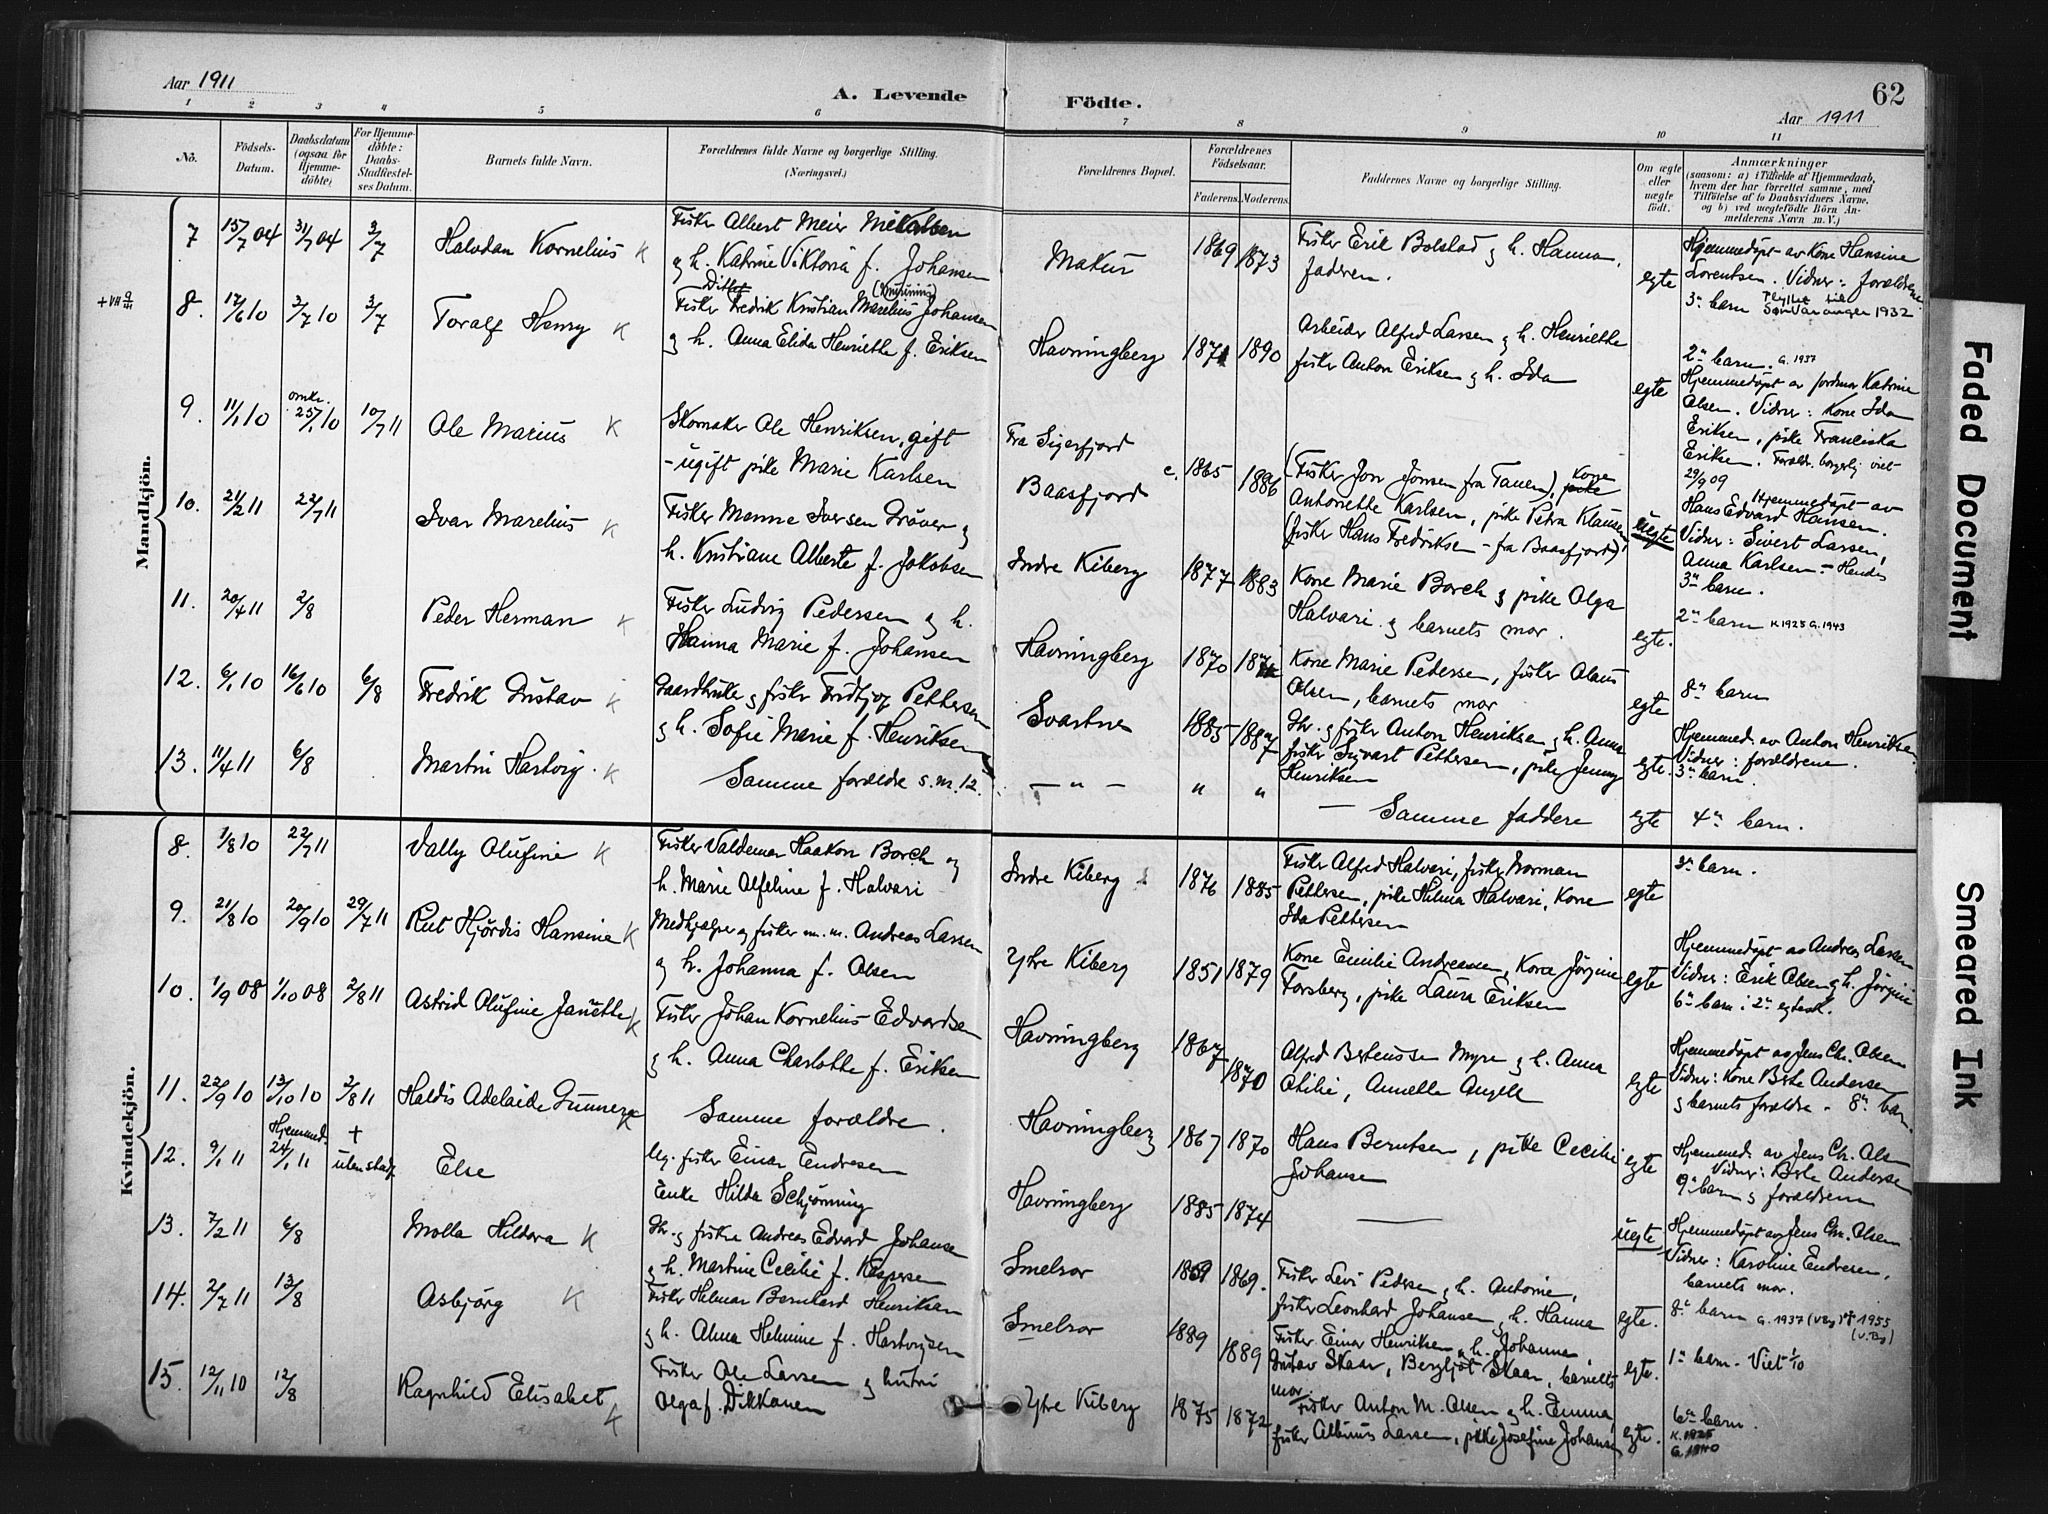 Aar 1911
A. Levende
Födte.
62
Aar 1911
1 2 3 4 5 6 7 8 9 10 11
No.
Födsels-
Datum.
Daabsdatum
(ogsaa for
Hjemme-
döbte)
For Hjemme-
döbte:
Daabs-
Stadfæstel-
ses Datum.
Barnets fulde Navn.
Forældrenes fulde Navne og borgerlige Stilling.
(Næringsvei.)
Forældrenes Bopæl.
Forældrenes
Födselsaar.
Faderens. Moderens.
Faddernes Navne og borgerlige Stilling.
Om ægte
eller
uægte
födt.
Anmærkninger
(saasom: a) i Tilfælde af Hjemmedaab,
hvem der har forrettet samme, med
Tilföielse af to Daabsvidners Navne.
og b) ved uægtefödte Börn An-
melderens Navn m. V.)
Mandkjön.
7 15/7 04 31/7 04 3/7 Halvdan Kornelius K
Fisker Albert Meier Mikalsen
og h. Katrine Viktoria f. Johansen
Makur 1869 1873
Fisker Erik Bolstad og h. Hanna,
faderen.
egte
Hjemmedøpt av Kone Hansine
Lorentsen. Vidner: forældrene
3die barn Flyttet til
Sør Varanger 1932
8. 17/6 10 3/7 10 3/7 Toralf Henry K
Ditlef
Fisker Fredrik Kristian Marelius Johansen
og h. Anna Elida Henriette f. Eriksen
Havningberg 1871 1890
Arbeider Alfred Larsen og h. Henriette
fisker Anton Eriksen og h. Ida
egte
2det barn. G. 1937
Hjemmedøpt av jordmor Katrine
Olsen. Vidner: Kone Ida
Eriksen, pike Franciska
Eriksen. Forældr. borgerlig viet
29/9 09
9. 11/1 10 omkr. 25/1 10 10/7 11 Ole Marius K
Skomaker Ole Henriksen, gift
- ugift pike Marie Karlsen
Fra Sigerfjord
Baasfjord c. 1865 1886
(Fisker Jon Jonsen fra Tanen), Kone
Antoriette Karlsen, pike Petra Klausen
(fisker Hans Fredriksen - fra Baasfjord)
uegte
Hjemmedøpt av
Hans Edvard Hansen.
Vidner: Sivert Larsen,
Anna Karlsen - Hendes
3die barn.
10. 21/2 11 22/7 11 Ivar Marelius K
Fisker Manne Iversen Drøver og
h. Kristiane Alberte f. Jakobsen
Indre Kiberg 1877 1883
Kone Marie Borch og pike Olga
Halvari og barnets mor.
egte.
2det barn K. 1925 G. 1943
11. 20/4 11 2/8 Peder Herman K
Fisker Ludvig Pedersen og h.
Hanna Marie f. Johansen
Havningberg 1870
Kone Marie Pedersen, fisker Olaus
Olsen, barnets mor
egte
8de barn
12. 6/1 10 16/6 10 6/8 Fredrik Gustav K
Gaardbruker og fisker Fridtjof Pettersen
og h. Sofie Marie f. Henriksen
Svartnes 1885 1887
Gbr. og fisker Anton Henriksen og h. Anna
fisker Sigvart Pettersen, pike Jenny
Henriksen
egte.
Hjemmed. av Anton Henriksen
Vidner: forældrene.
3die barn.
13. 11/4 11 6/8 Martin Hartvig. K
Samme forældre s. m. 12.
- " - " "
- Samme faddere
egte
4de barn.
Kvindekjön.
8. 1/8 10 22/7 11 Vally Olufine K
Fisker Valdemar Haakon Borch og
h. Marie Alfeline f. Halvari
Indre Kiberg 1876 1885
Fisker Alfred Halvari, fisker Norman
Pettersen, pike Helma Halvari, Kone
Ida Pettersen
egte
3die barn.
9. 21/8 10 20/9 10 29/7 11 Rut Hjördis Hansine K
Medhjælper og fisker m. m. Andreas Larsen
og h. Johanna f. Olsen
Ytre Kiberg 1851 1879
Kone Emilie Andreassen, Kone Jørgine
Forsberg, pike Laura Eriksen
egte
Hjemmedøpt av Andreas Larsen
Vidner: Erik Olsen og h. Jørgine
6te barn i 2det egtesk.
10. 1/9 08 1/10 08 2/8 11 Astrid Olufine Janette K
Fisker Johan Kornelius Edvardsen
og h. Anna Charlotte f. Eriksen
Havningberg 1867 1870
Alfred Berteussen Myre og h. Anna
Otilie, Annette Angell
egte
Hjemmedøpt av Jens Chr. Olsen
Vidner: Kone Berte Andersen
og barnets forældre - 8de barn.
11. 22/9 10 13/10 10 2/8 11 Haldis Adelaide Gunnera K
Samme forældre.
Havningberg 1867 1870
Hans Berntsen, pike Cecilie
Johansen
egte
Hjemmed. av Jens Ch. Olsen
Vidner: Berte Andersen
9de barn og forældrene
12. 9/1 11 Hjemmed. 24/1 11 + uten stadf. Else
Ug. fisker Einar Endresen
Enke Hilda Schjønning
Havningberg 1885 1874
uegte
Hjemmedøpt av Jens Chr. Olsen
Vidner: Karoline Endresen,
barnets mor.
13. 7/2 11 6/8 Molla Hildora K
Gbr. og fisker Andreas Edvard Johansen
og h. Martine Cecilie f. Kaspersen
Smelror 1869 1869.
Fisker Levi Pedersen og h. Antonie,
fisker Leonhard Johansen og h. Hanna
egte.
8de barn G. 1937 (V.By) † 1955
(V.By)
14. 2/7 11 13/8 Asbjørg K
Fisker Helmar Bernhard Henriksen
og h. Alma Helmine f. Hartvigsen
Smelror 1889 1889
Fisker Einar Henriksen og h. Johanna
Gustav Skaar, Bergljot Skaar, barnets
mor.
egte.
1ste barn. Viet 1/10
15. 12/11 10 12/8 Ragnhild Elisabet K
Fisker Ole Larsen og hustru
Olga f. Dikkanen
Ytre Kiberg 1875 1872
Fisker Anton M. Olsen og h. Emma,
fisker Albinus Larsen, pike Josefine Johansen
egte.
6te barn.
K. 1925
G. 1940
Faded Document
Smeared Ink